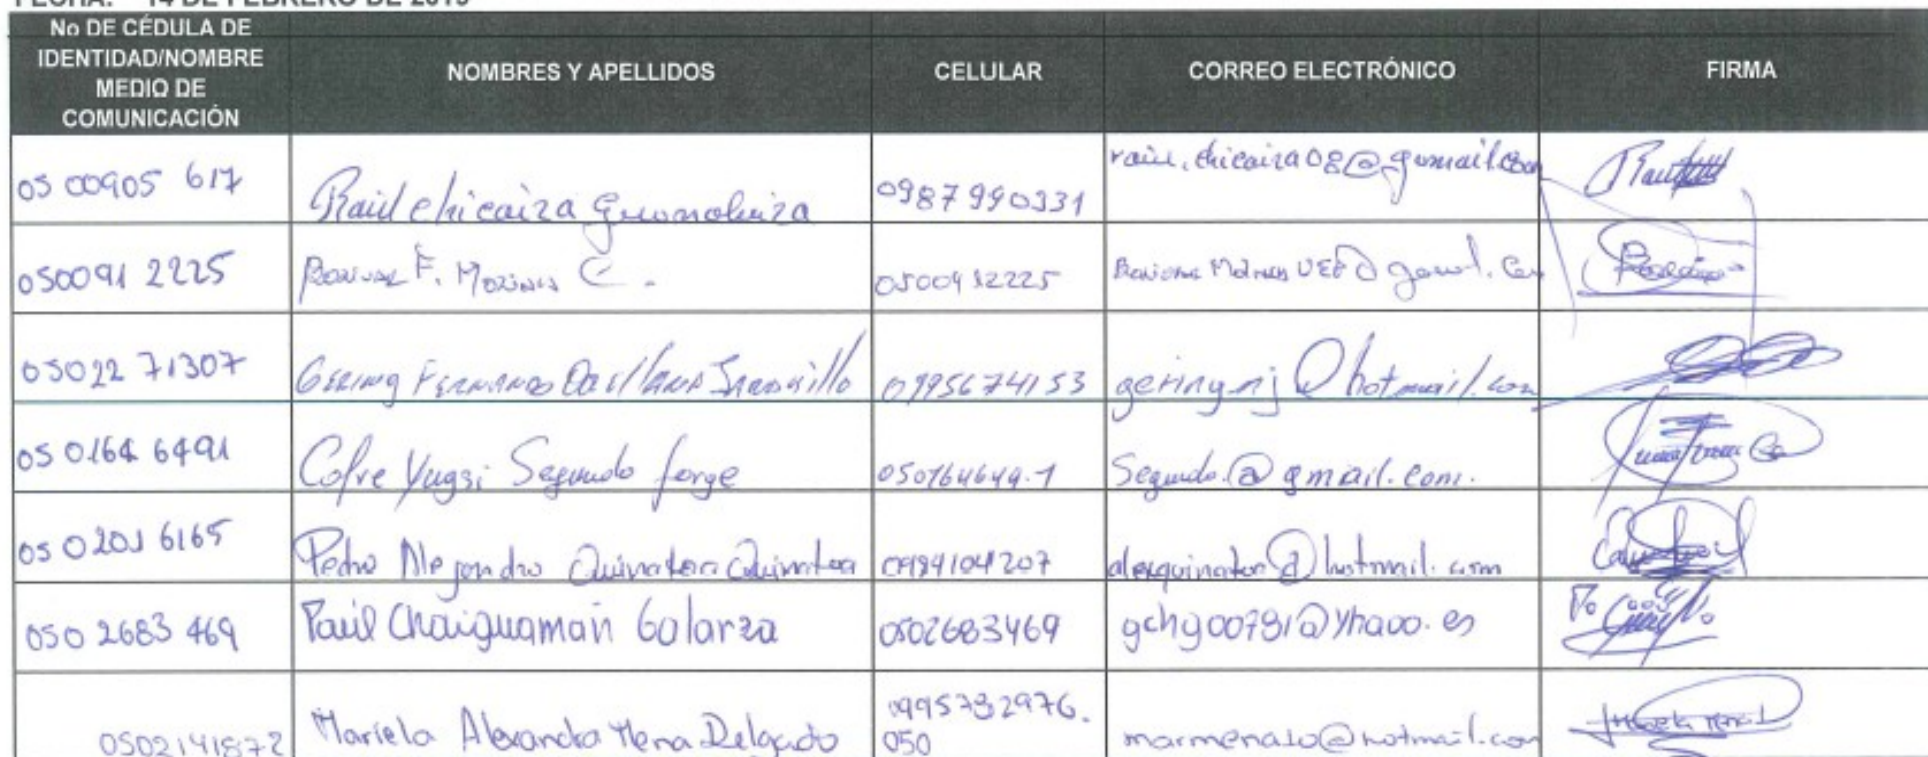 FECHA: 14 DE FEBRERO DE 2019
No DE CÉDULA DE IDENTIDAD/NOMBRE MEDIO DE COMUNICACIÓN NOMBRES Y APELLIDOS CELULAR CORREO ELECTRÓNICO FIRMA
0500905617 Raúl Chicaiza 0987990331
0500912225 F. C. 0500912225
0502271307 Gering Fernando 0995674153 geringnj@hotmail.com
0501646491 Cofre Yugsi Segundo Jorge 050164649-1 Segundo.@gmail.com.
0502016165 Pedro Alejandro Quinatoa Quinatoa 0984104207 alexquinatoa@hotmail.com
0502683469 Paúl Chaiguaman Galarza 0502683469 gchg00781@yhaoo.es
0502141872 Mariela Alexandra Mena Delgado 0995732976. 050 marmena10@hotmail.com